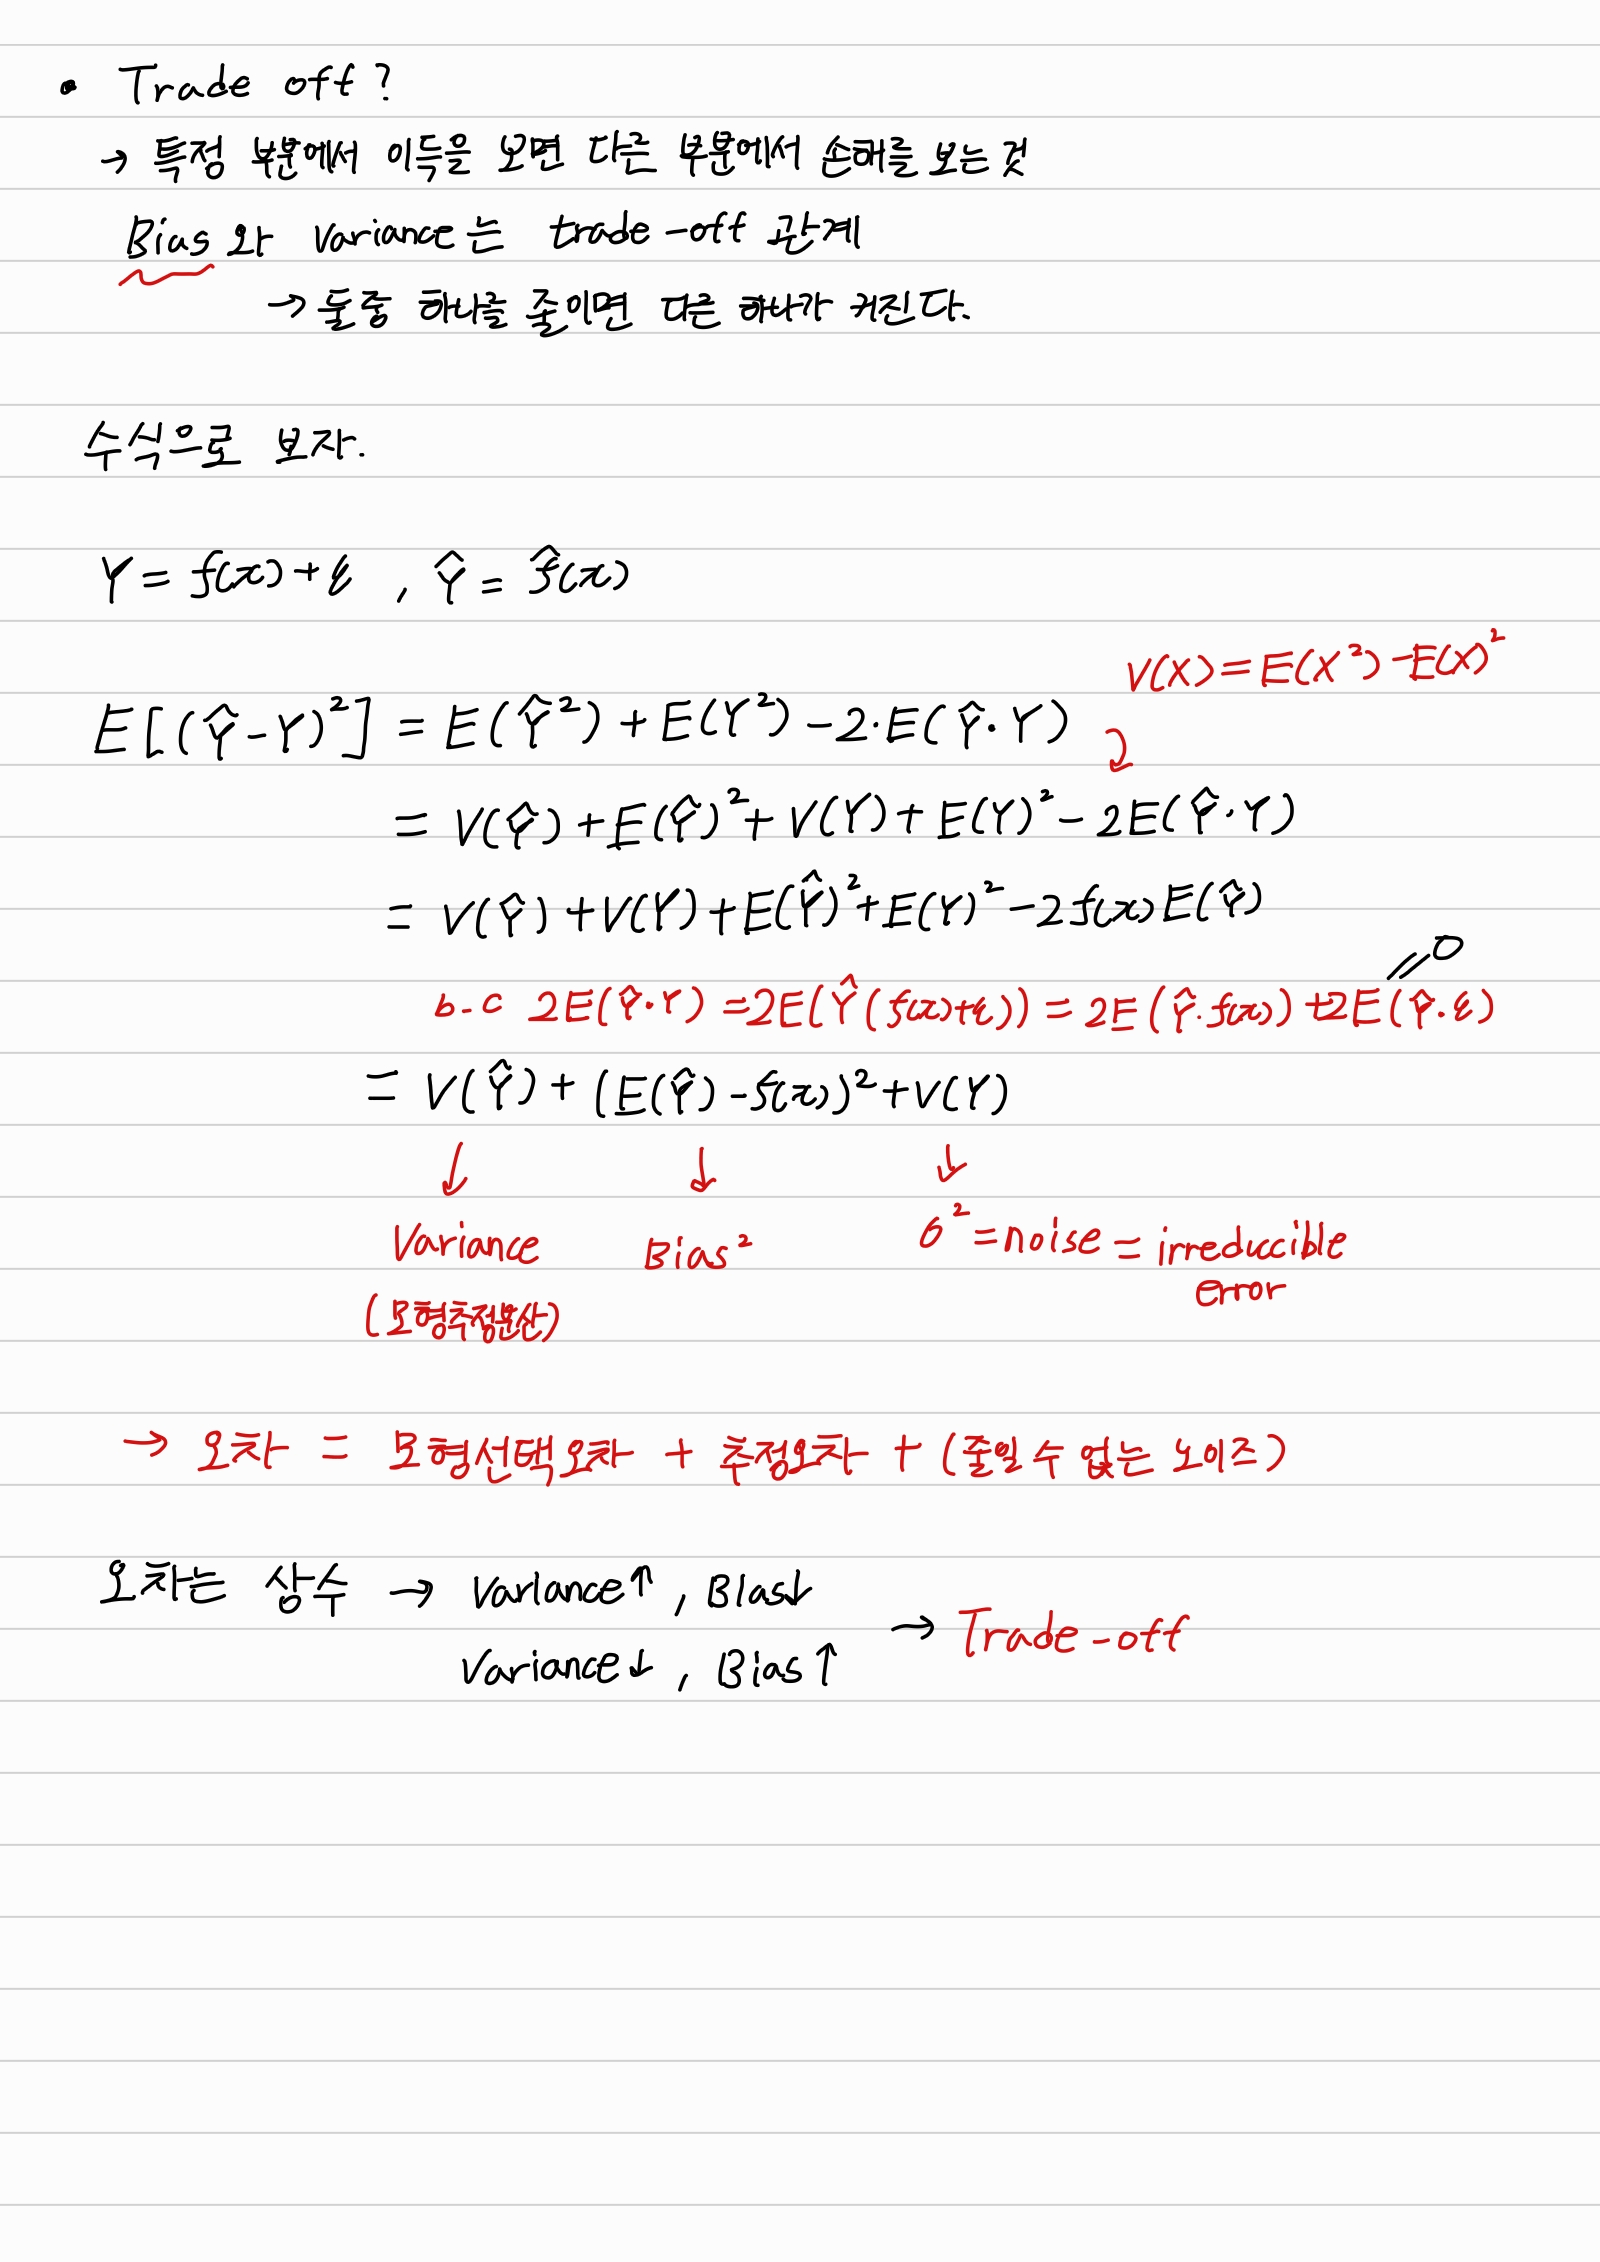 • Trade off?
→ 특정 부분에서 이득을 보면 다른 부분에서 손해를 보는 것
Bias 와 Variance 는 trade-off 관계
→ 둘중 하나를 줄이면 다른 하나가 커진다.
수식으로 보자.
Y = f(x) + ε , Ŷ = f̂(x)
V(X) = E(X²) - E(X)²
E[(Ŷ-Y)²] = E(Ŷ²) + E(Y²) - 2·E(Ŷ·Y)
= V(Ŷ) + E(Ŷ)² + V(Y) + E(Y)² - 2E(Ŷ·Y)
= V(Ŷ) + V(Y) + E(Ŷ)² + E(Y)² - 2f(x)E(Ŷ)
b-c 2E(Ŷ·Y) = 2E(Ŷ(f(x)+ε)) = 2E(Ŷ·f(x)) + 2E(Ŷ·ε) = 0
= V(Ŷ) + (E(Ŷ) - f(x))² + V(Y)
↓ ↓ ↓
Variance Bias² σ² = noise = irreduccible
error
(모형추정분산)
→ 오차 = 모형선택오차 + 추정오차 + (줄일 수 없는 노이즈)
오차는 상수 → Variance↑, Bias↓
→ Trade-off
Variance↓, Bias↑